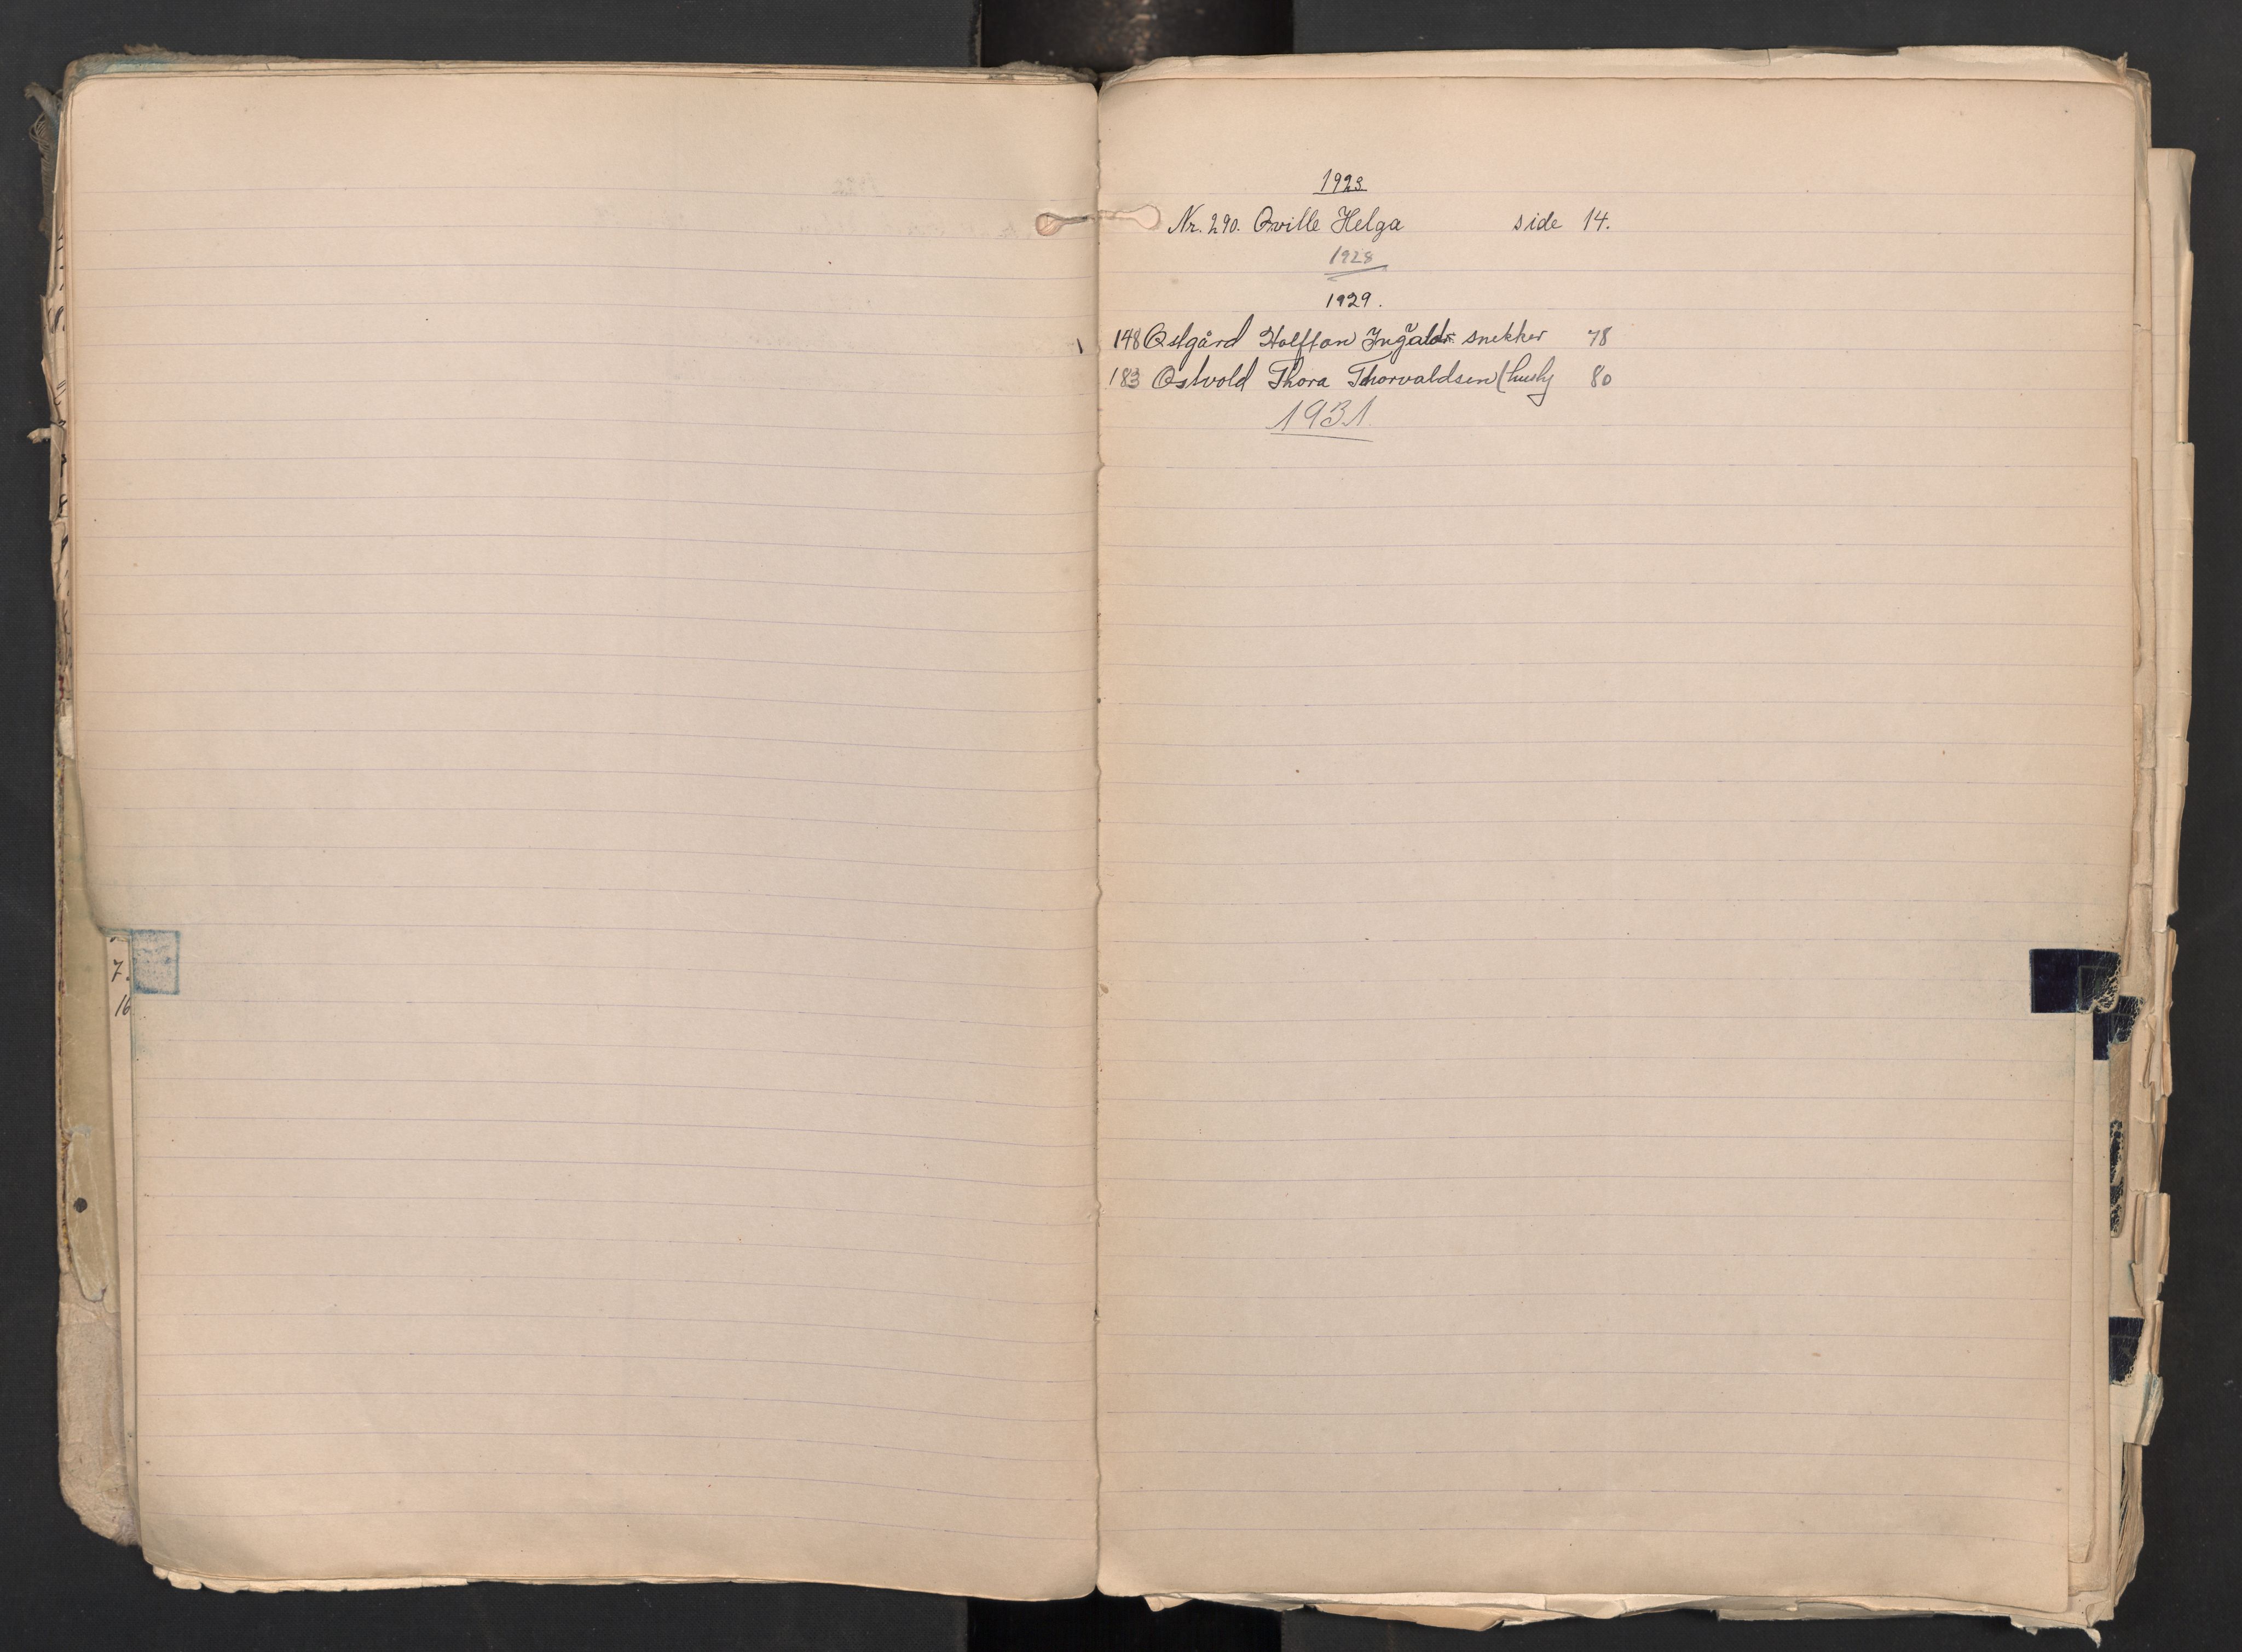 7.
16
1923
Nr. 290. Qville Helga side 14.
1928
1929.
148 Østgård Halftan Ingvald snekker 78
183 Østvold Thora Thorvaldsen 80
1931.